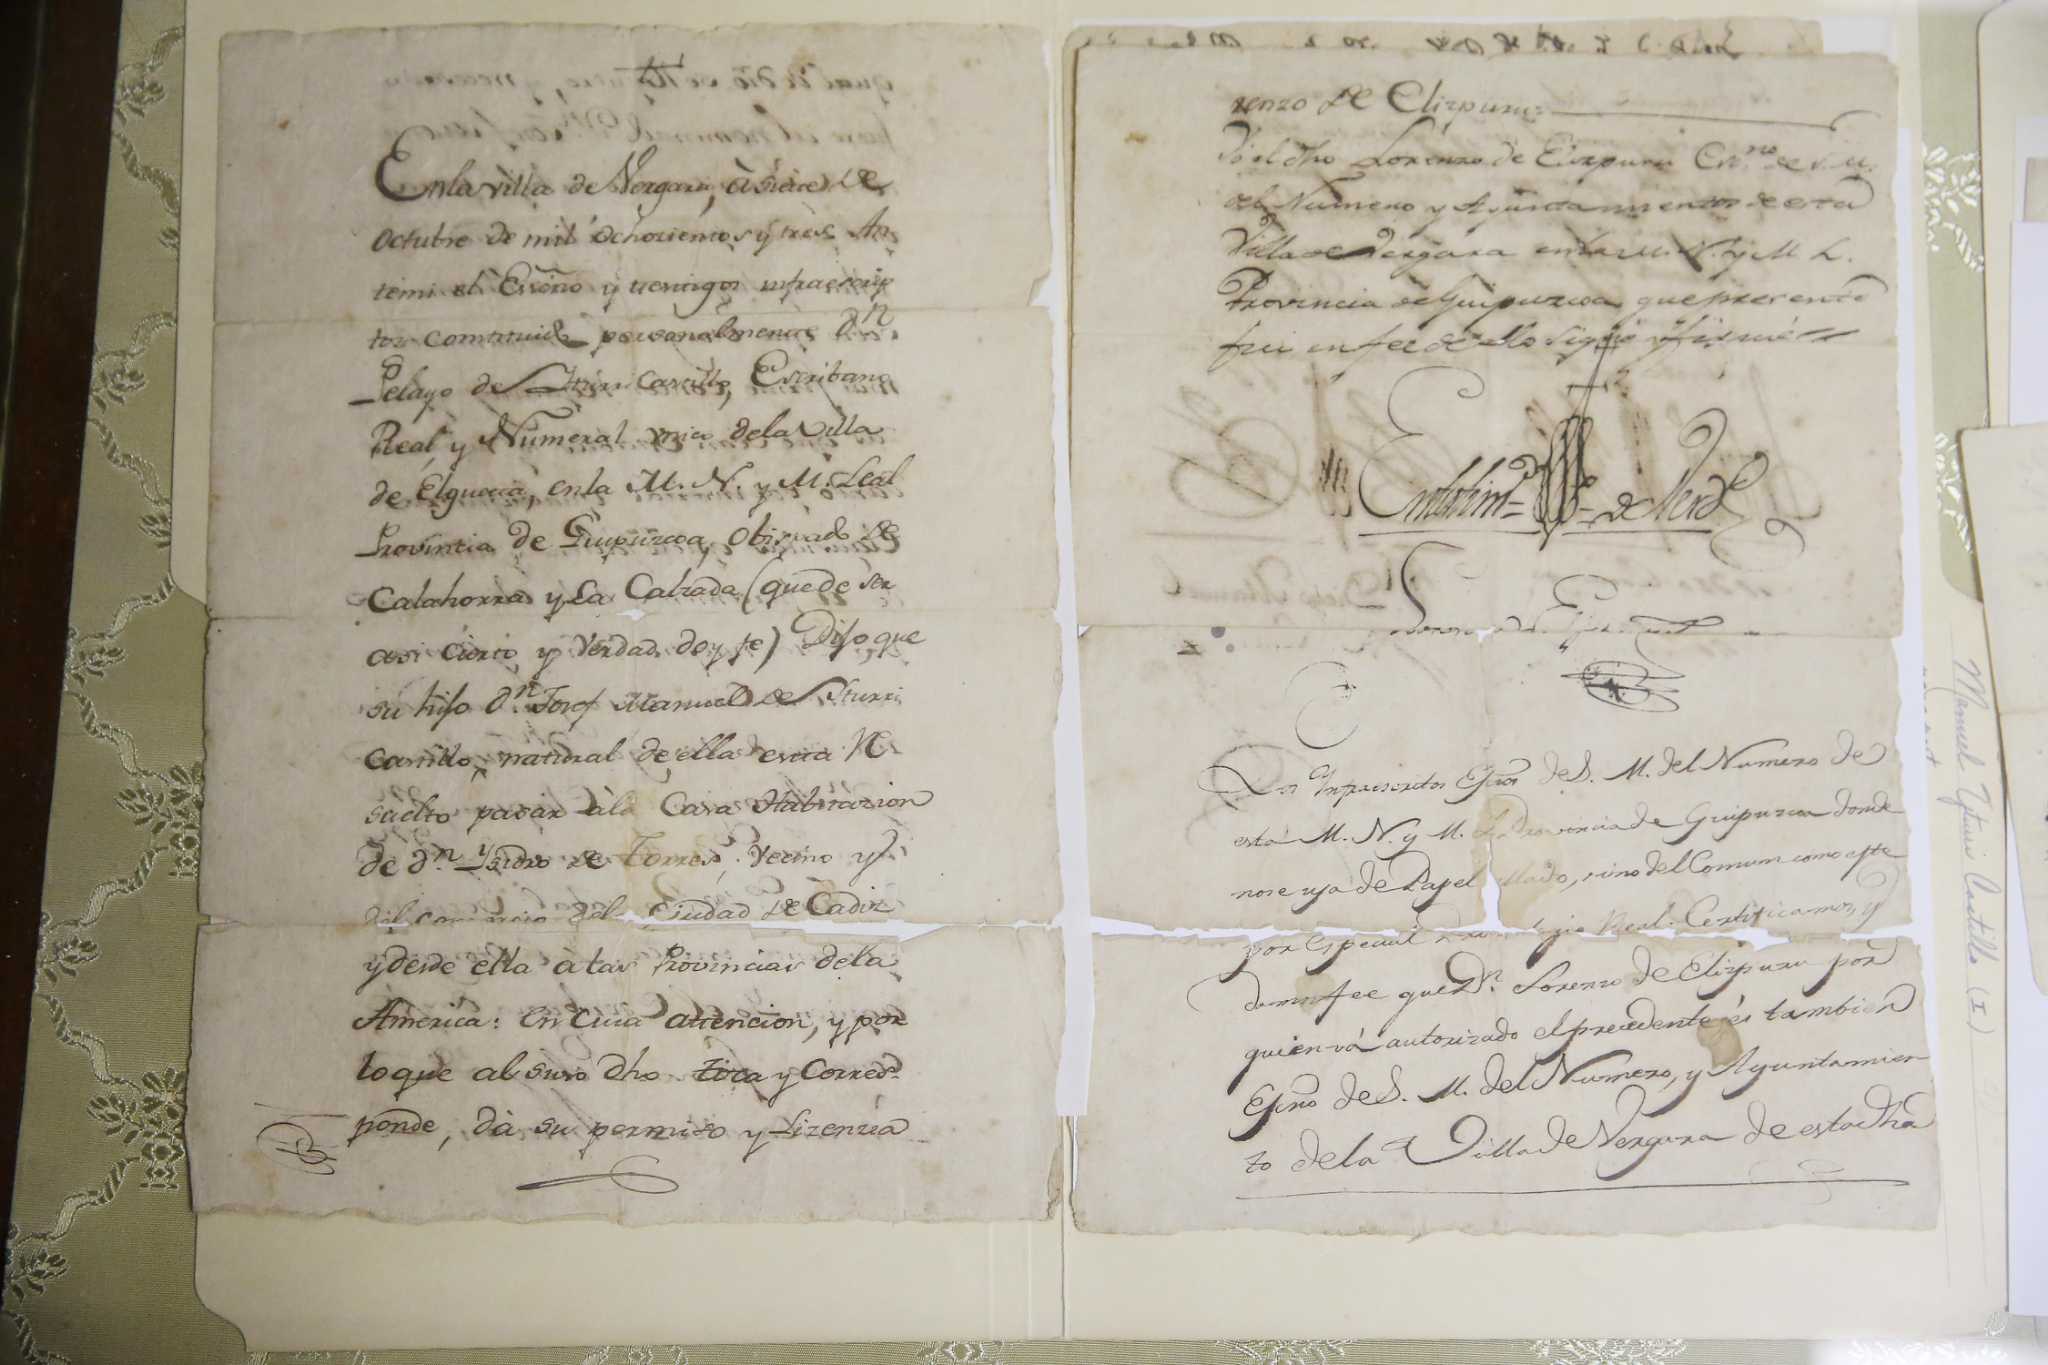 En la villa de Vergara, à siete de
Octubre de mil ochocientos y tres An
temi el Essno y testigos infraescrip
tos constituido personalmente Dn
Pelayo de Yturricastillo, Escribano
Real, y Numeral vno de la Villa
de Elgueta, en la M. N. y M. Leal
Provincia de Guipuzcoa, Obispado de
Calahorra y La Calzada (que de ser
asi cierto y verdad doy fe) Dijo, que
su hijo Dn Josef Manuel de Yturri
castillo, natural de ella está Re
suelto pasar à la Casa Habitacion
de Dn Ysidro de Torres, Vecino y
del comercio de la Ciudad de Cadiz
y desde ella à las Provincias de la
America: En cuia attencion, y por
lo que al suso dho toca y Corres-
ponde, dà su permiso y Lizenzia
renzo de Elizpuru
Yo el dho Lorenzo de Elizpuru Esno de S. M.
del Numero y Ayuntamiento de esta
Villa de Vergara en la M. N. y M. L.
Provincia de Guipuzcoa que presente
fui en fee de ello signé y firmé
En testimo de Verd
Lorenzo de Elizpuru
Los Infrascritos Esnos de S. M. del Numero de
esta M. N. y M. L. Provincia de Guipuzcoa donde
no se usa de Papel sellado, sino del Comun como este
por especial Privilegio Real: Certificamos, y
damos fee que Dn Lorenzo de Elizpuru por
quien vá autorizado el precedente és tambien
Esno de S. M. del Numero, y Ayuntamien
to de la Villa de Vergara de esta dha
Manuel Yturri Castillo (I)